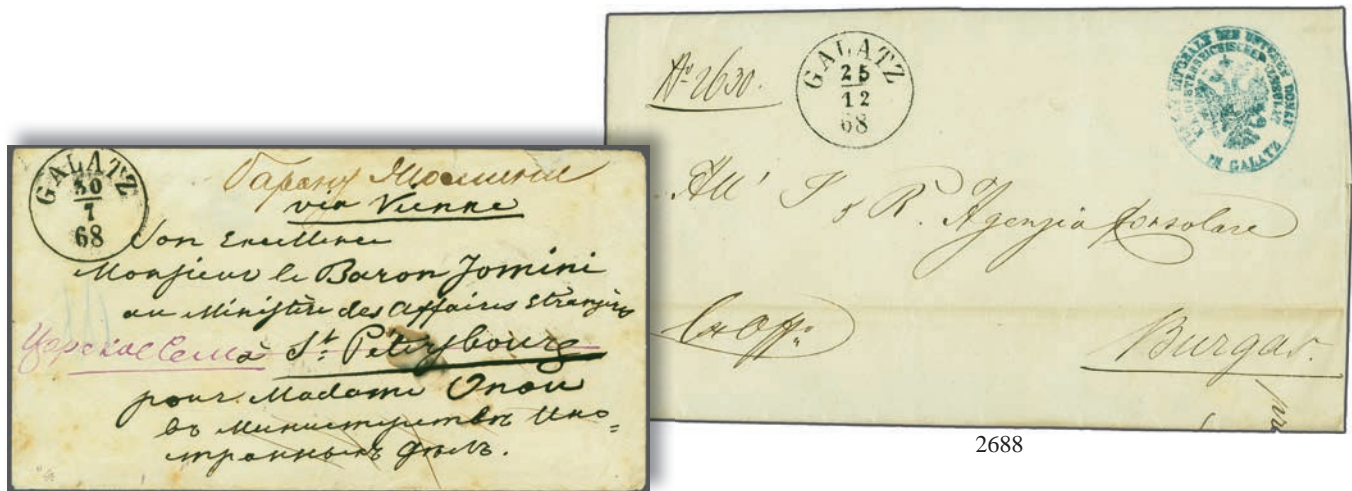 GALATZ
30
7
68
via Vienne
Son Excellence
Monsieur le Baron Jomini
au Ministère des Affaires Etrangères
Царское Село à St. Pétersbourg
pour Madame Onou
въ Министерствѣ Ино=
странныхъ Дѣлъ.
No 2630.
GALATZ
25
12
68
IN GALATZ
All' I & R. Agenzia Consolare
Ex Off.
Burgas.
2688